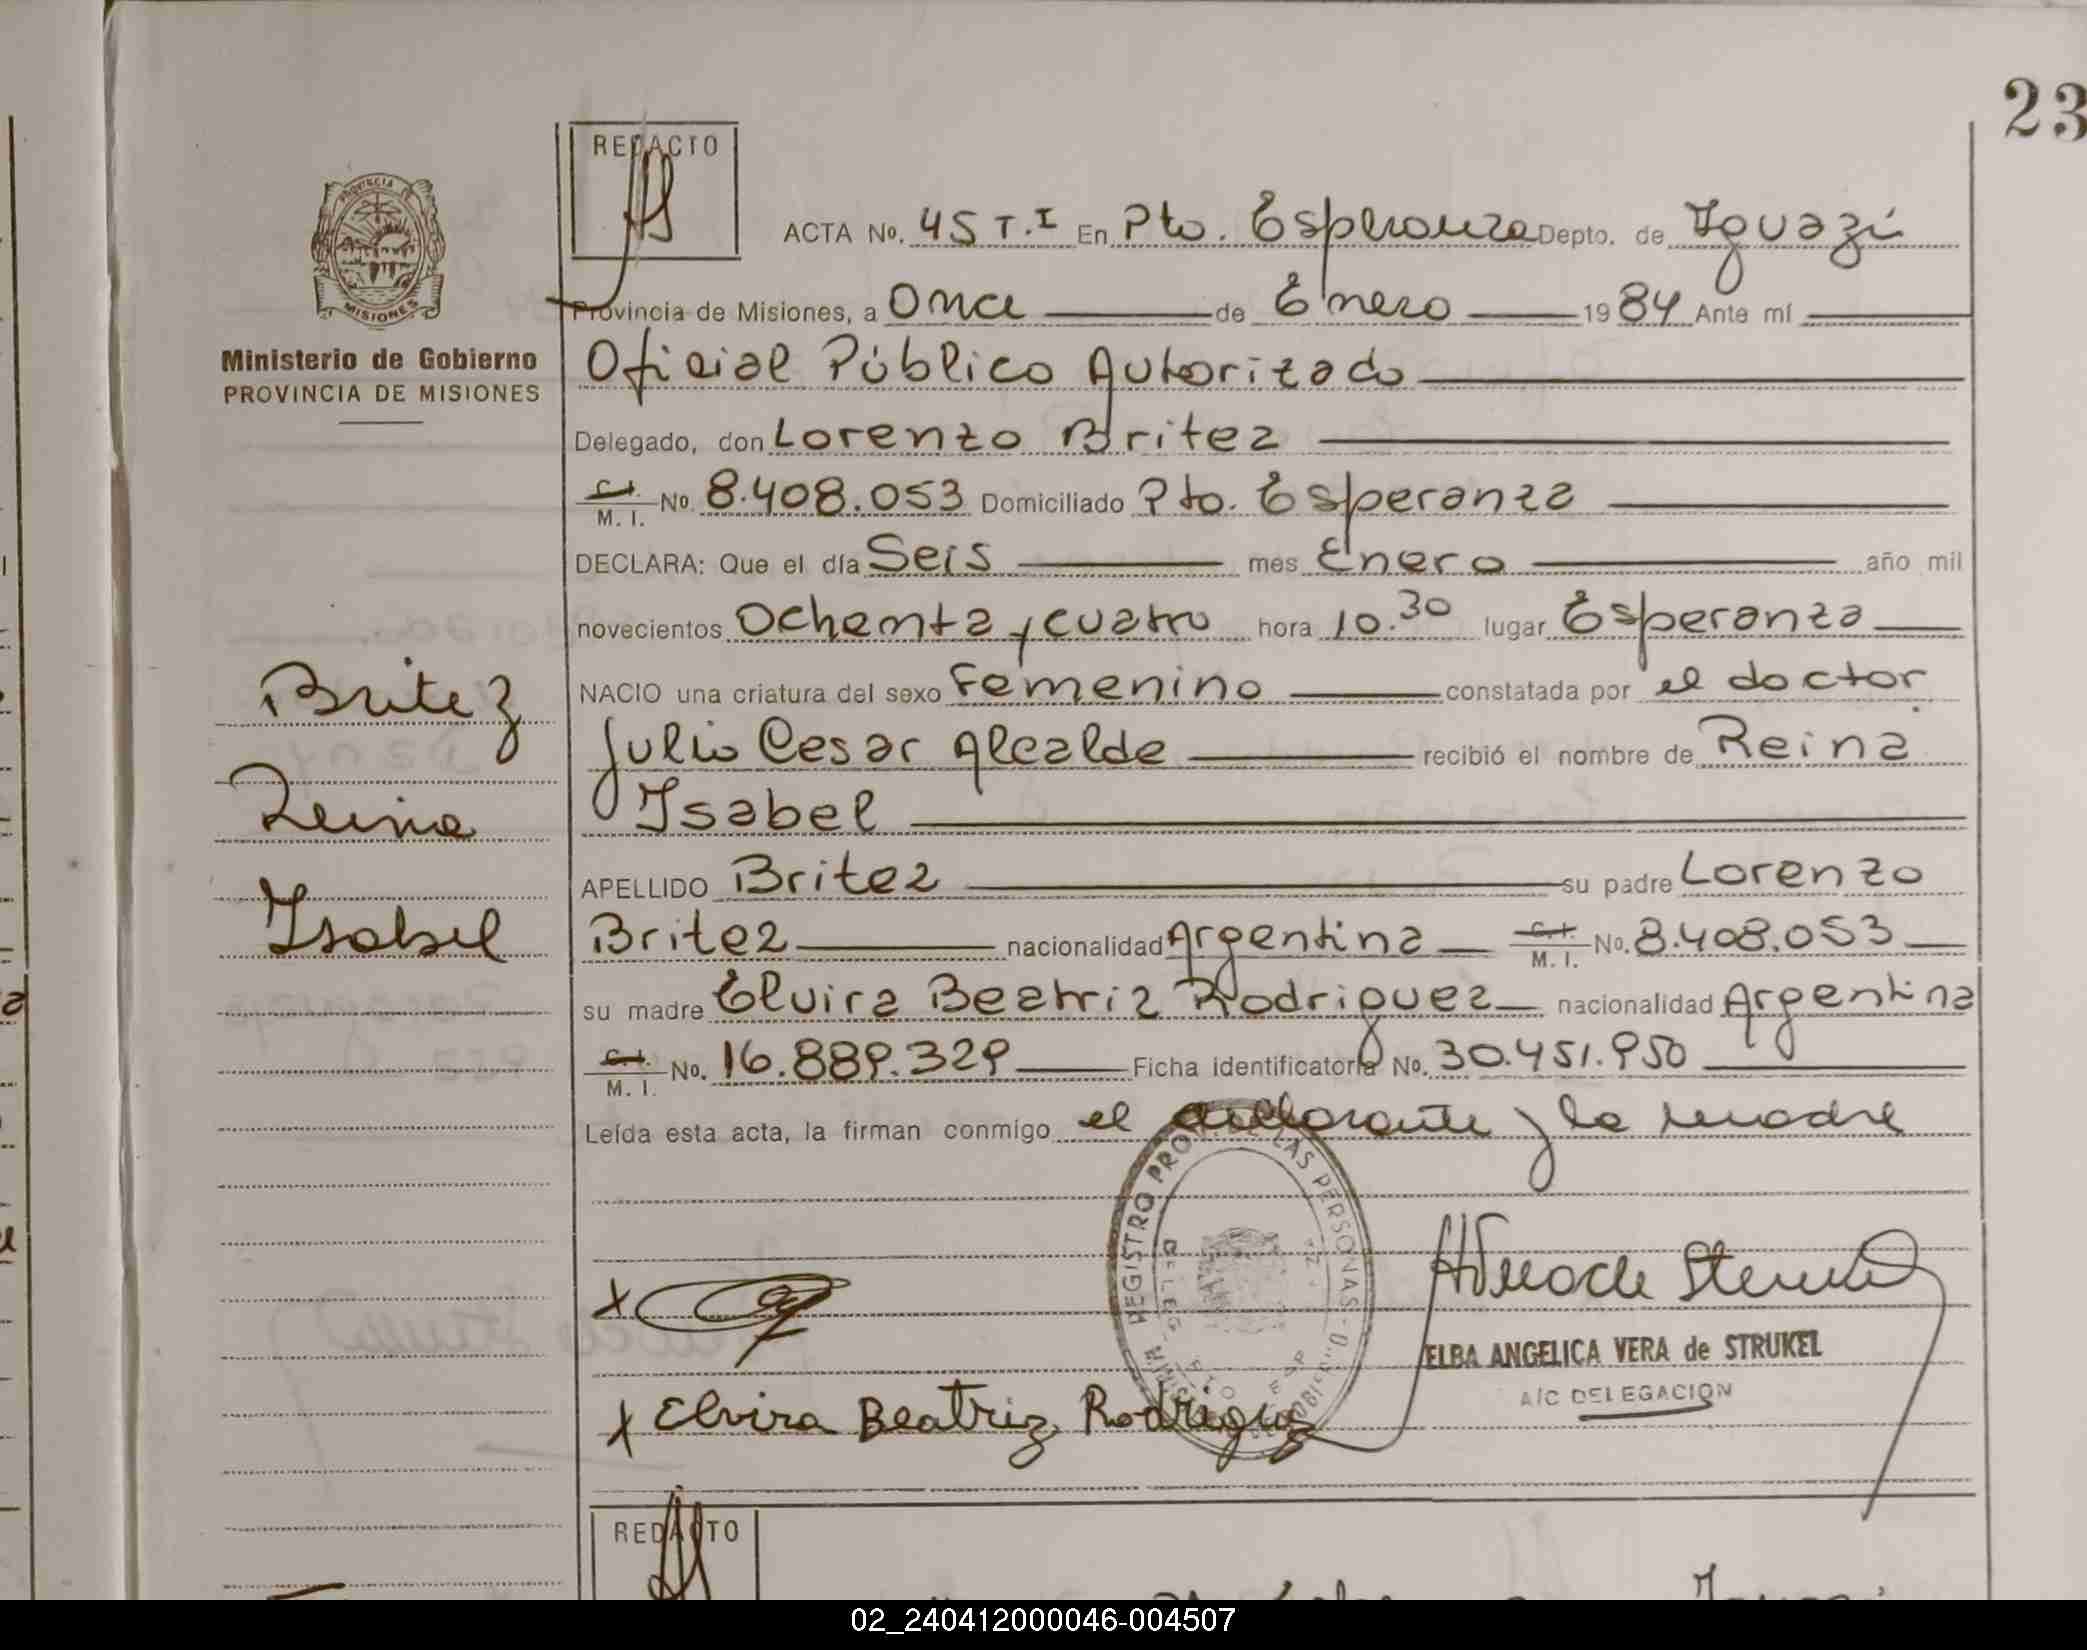 23
REDACTO
PROVINCIA DE
MISIONES
Ministerio de Gobierno
PROVINCIA DE MISIONES
ACTA No. 45 T.I En Pto. Esperanza Depto. de Iguazú
Provincia de Misiones, a Once de Enero 1984 Ante mí
Oficial Público Autorizado
Delegado, don Lorenzo Britez
C.I. M. I. No. 8.408.053 Domiciliado Pto. Esperanza
DECLARA: Que el día Seis mes Enero año mil
novecientos Ochenta y cuatro hora 10.30 lugar Esperanza
NACIO una criatura del sexo Femenino constatada por el doctor
Julio Cesar Alcalde recibió el nombre de Reina
Isabel
APELLIDO Britez su padre Lorenzo
Britez nacionalidad Argentina C.I. M. I. No. 8.408.053
su madre Elvira Beatriz Rodriguez nacionalidad Argentina
C.I. M. I. No. 16.889.329 Ficha identificatoria No. 30.451.950
Leída esta acta, la firman conmigo el declarante y la madre
Britez
Reina
Isabel
REGISTRO PROV. LAS PERSONAS
ELBA ANGELICA VERA de STRUKEL
A/C DELEGACION
x Elvira Beatriz Rodriguez
REDACTO
02_240412000046-004507